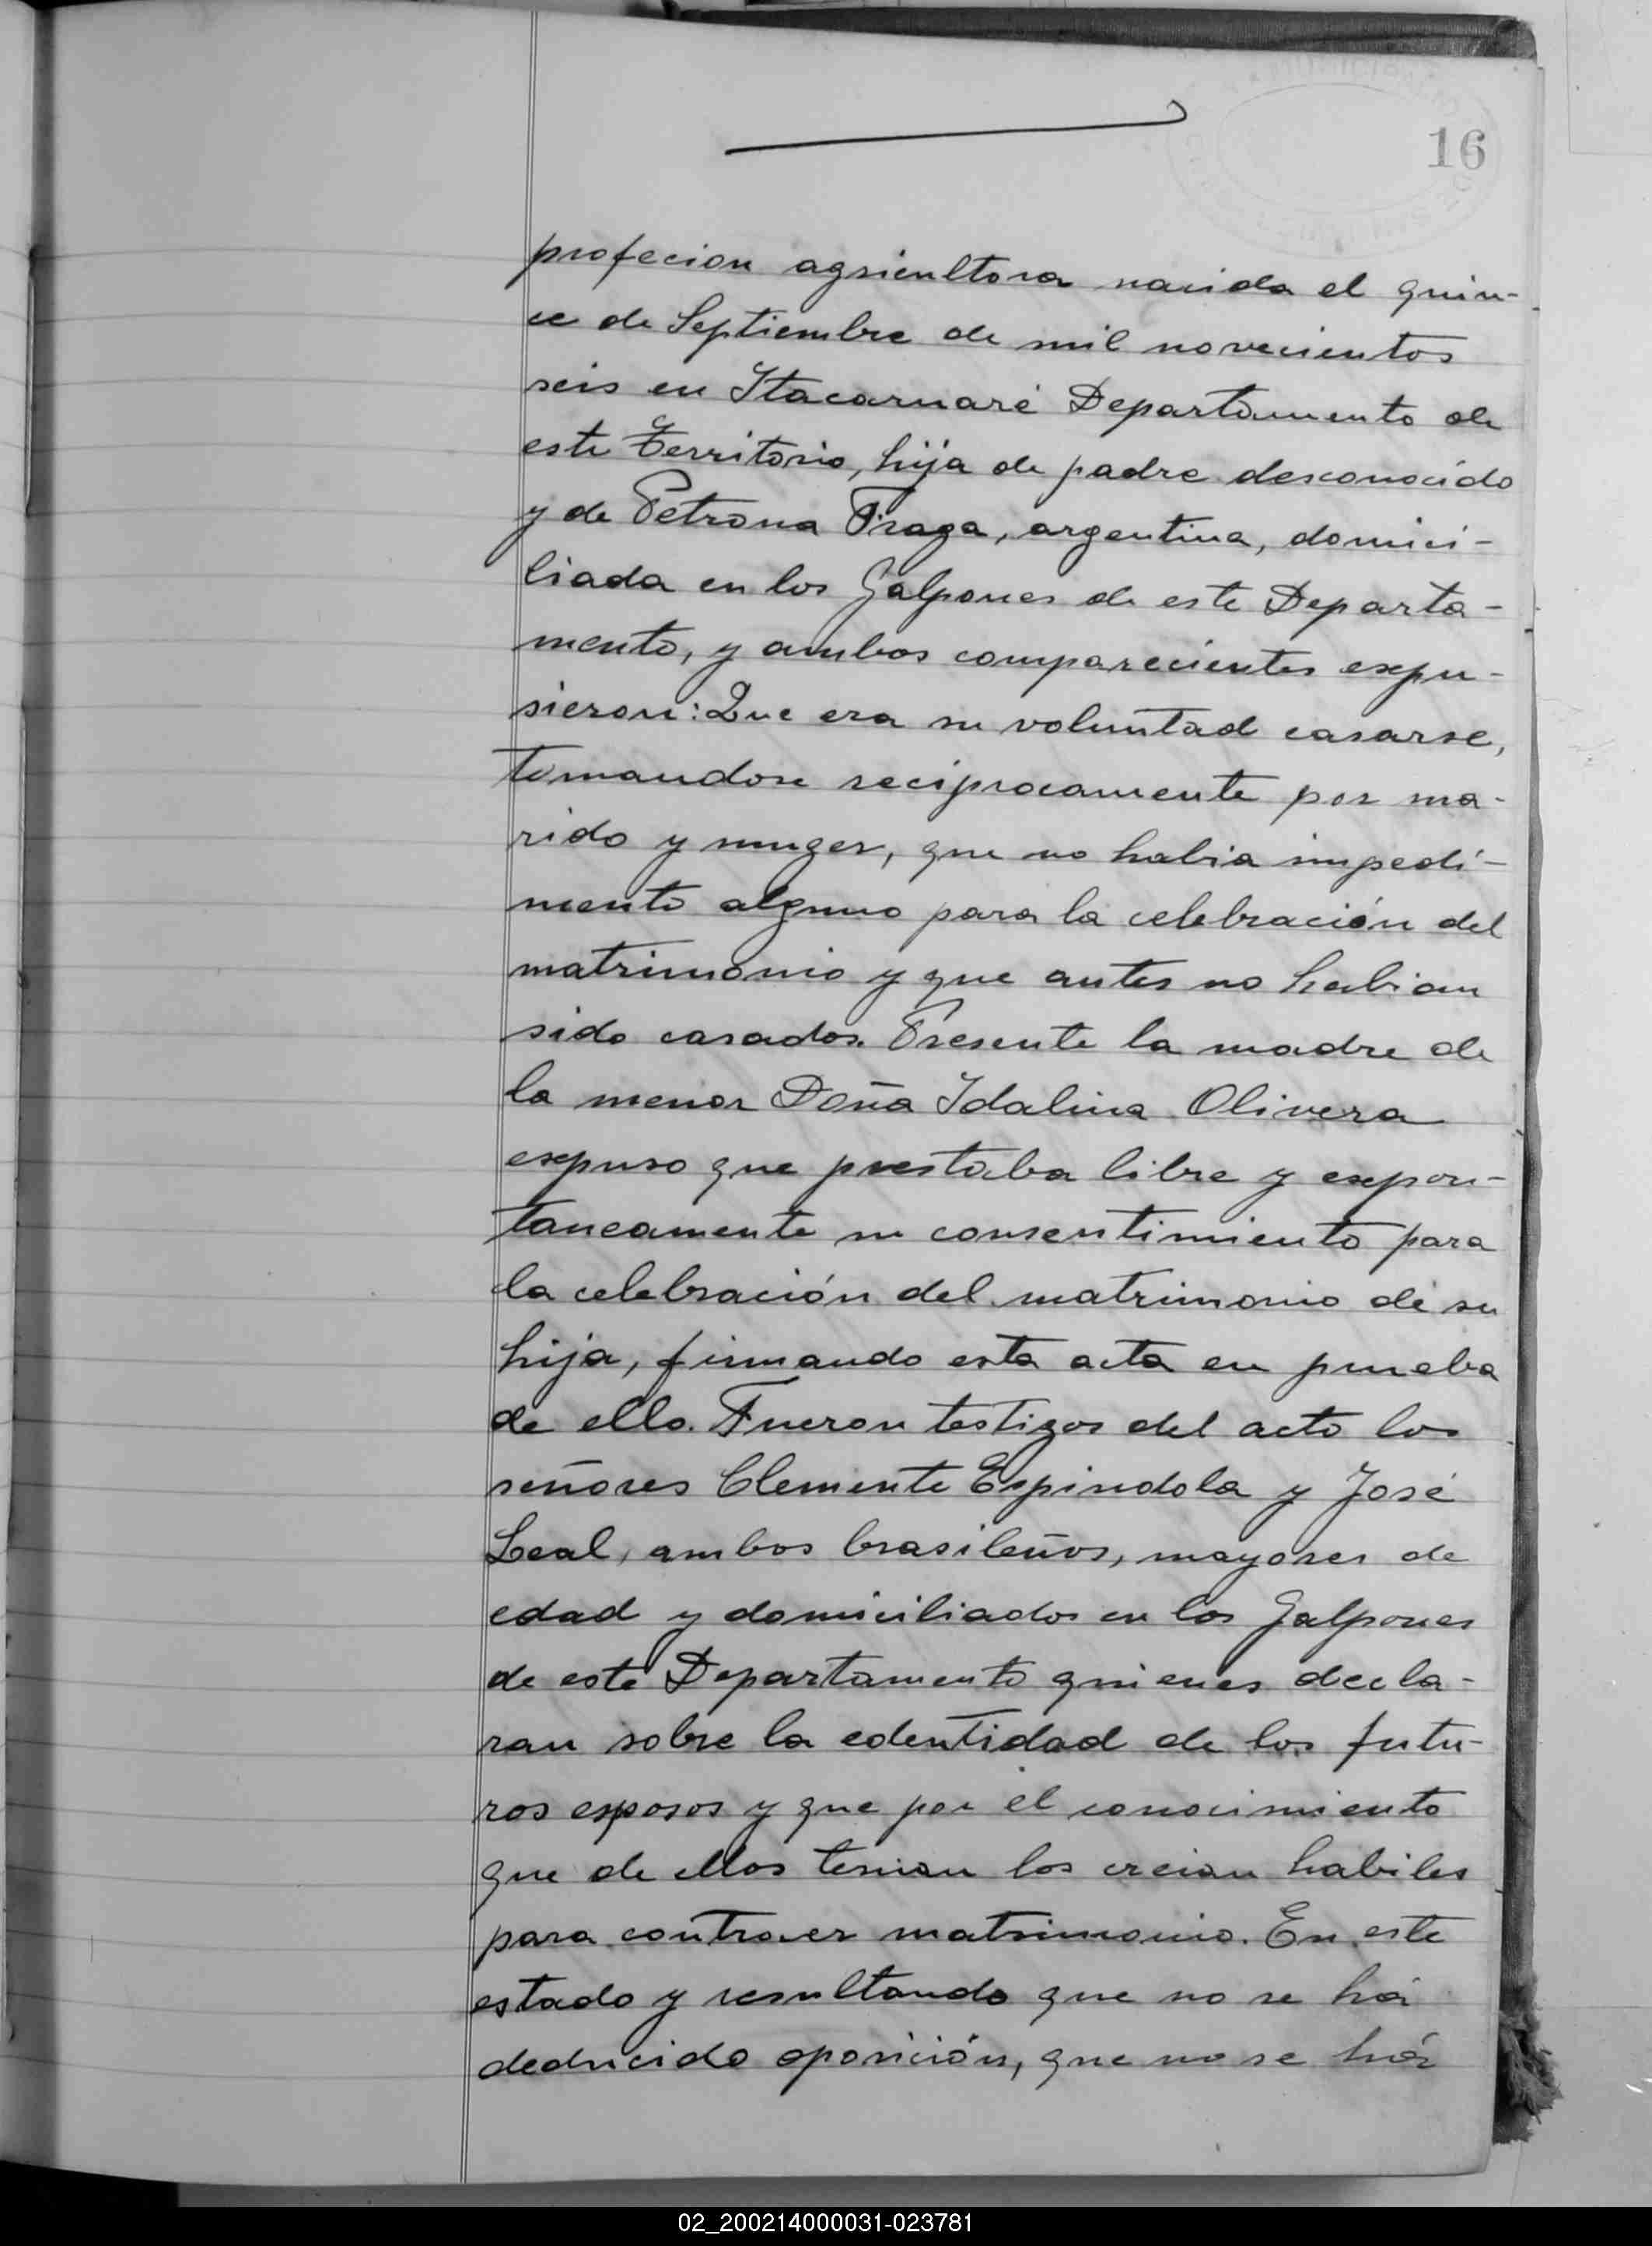 16
profecion agricultora nacida el quin-
ce de Septiembre de mil novecientos
seis en Itacaruaré Departamento de
este Territorio, hija de padre desconocido
y de Petrona Fraga, argentina, domici-
liada en los Galpones de este Departa-
mento, y ambos comparecientes expu-
sieron: Que era su voluntad casarse,
tomandose reciprocamente por ma-
rido y muger, que no habia impedi-
mento alguno para la celebración del
matrimonio y que antes no habian
sido casados. Presente la madre de
la menor Doña Idalina Olivera
expuso que prestaba libre y expon-
taneamente su consentimiento para
la celebración del matrimonio de su
hija, firmando esta acta en prueba
de ello. Fueron testigos del acto los
señores Clemente Espindola y José
Leal, ambos brasileños, mayores de
edad y domiciliados en los Galpones
de este Departamento quienes decla-
ran sobre la edentidad de los futu-
ros esposos y que por el conocimiento
que de ellos tenian los creian habiles
para contraer matrimonio. En este
estado y resultando que no se há
deducido oposición, que no se há
02_200214000031-023781